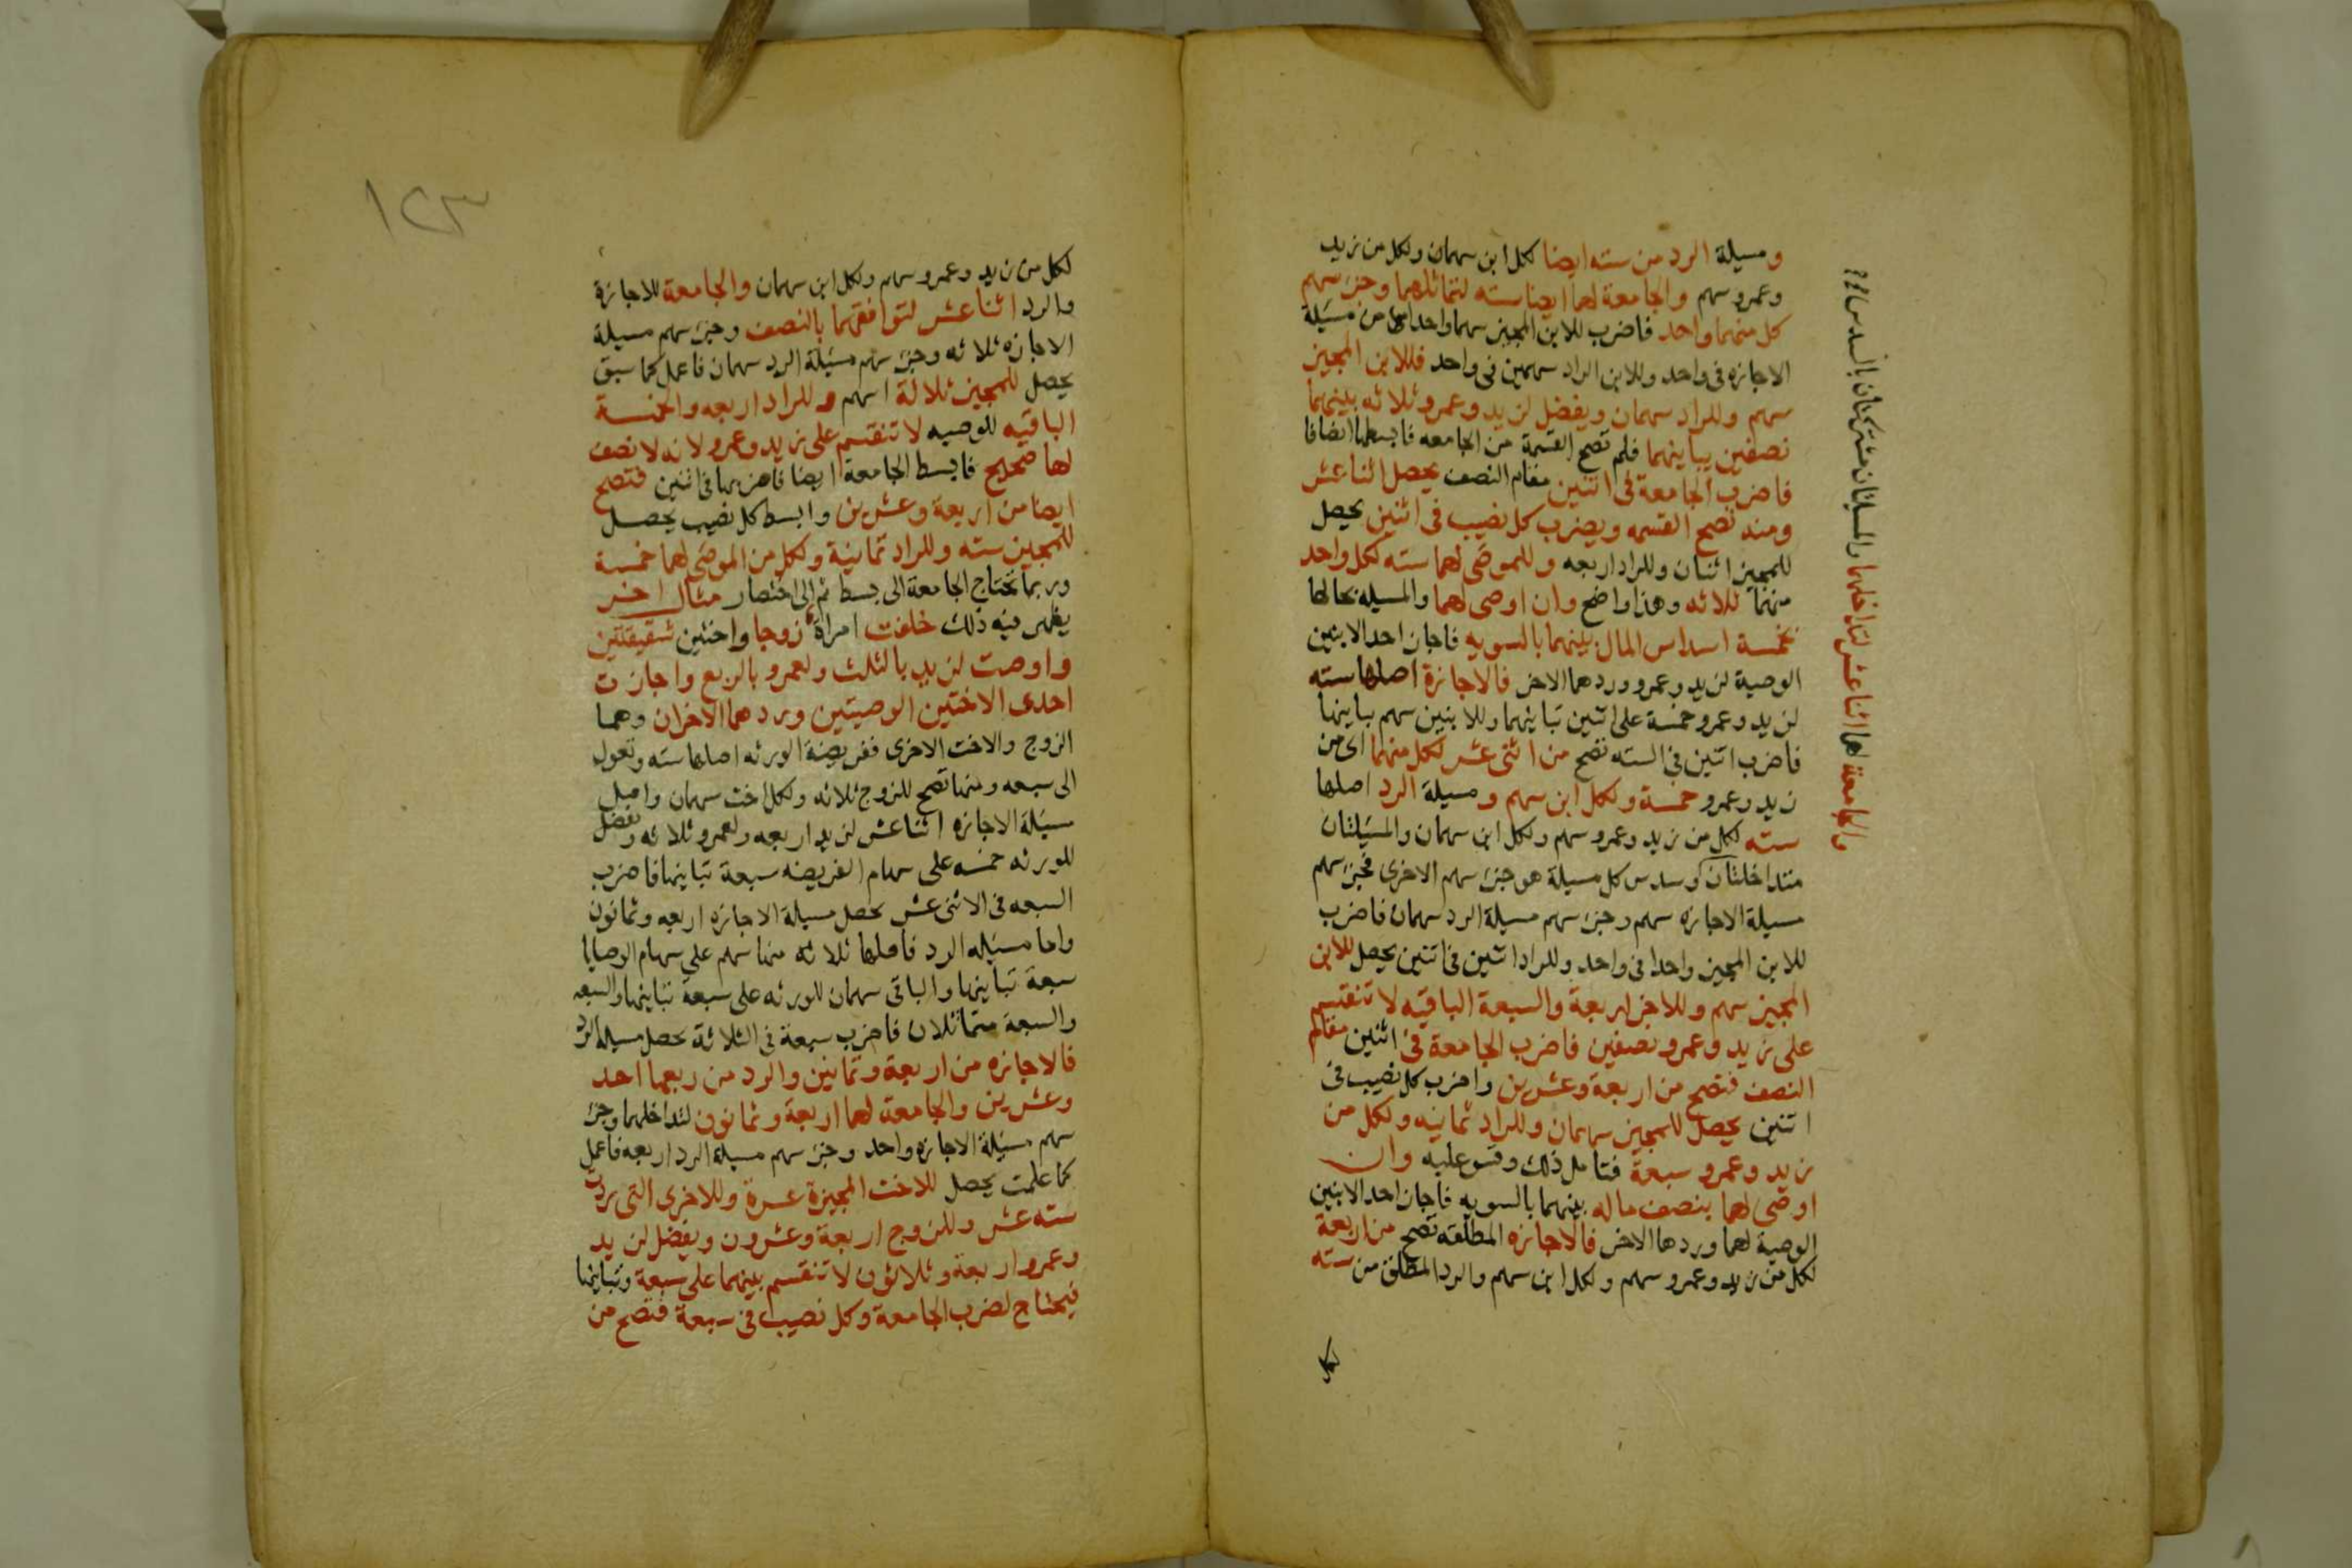 ومسيلة الرد من سته ايضا لكل ابن سهمان ولكل من زيد
وعمرو سهم والجامعة لهما ايضا سته لتماثلهما وجزء سهم
كل منهما واحد فاضرب للابن المجيز سهما واحدا من مسئلة
الاجازه فى واحد وللابن الراد سهمين فى واحد فللابن المجيز
سهم وللراد سهمان ويفضل لزيد وعمرو ثلاثه بينهما
نصفين يباينهما فلم تصح القسمة من الجامعه فابسطها انصافا
فاضرب الجامعة فى اثنين مقام النصف يحصل اثنا عشر
ومنه تصح القسمه ويضرب كل نصيب فى اثنين يحصل
للمجيز اثنان وللراد اربعه وللموصى لهما سته لكل واحد
منهما ثلاثه وهذا واضح وان اوصى لهما والمسيلة بحالها
بخمسة اسداس المال بينهما بالسويه فاجاز احد الابنين
الوصية لزيد وعمرو وردهما الاخر فالاجازة اصلها سته
لزيد وعمرو خمسة على اثنين تباينهما وللابنين سهم يباينها
فاضرب اثنين فى السته تصح من اثنى عشر لكل منهما اى من
زيد وعمرو خمسة ولكل ابن سهم ومسيلة الرد اصلها
سته لكل من زيد وعمرو سهم ولكل ابن سهمان والمسيلتان
متداخلتان وسدس كل مسيلة هو جزء سهم الاخرى فجزء سهم
مسيلة الاجازه سهم وجزء سهم مسيلة الرد سهمان فاضرب
للابن المجيز واحدا فى واحد وللراد اثنين فى اثنين يحصل للابن
المجيز سهم وللاخر اربعة والسبعة الباقيه لا تنقسم
على زيد وعمرو نصفين فاضرب الجامعة فى اثنين مقام
النصف فتصح من اربعة وعشرين واضرب كل نصيب فى
اثنين يحصل للمجيز سهمان وللراد ثمانيه ولكل من
زيد وعمرو سبعة فتامل ذلك وقس عليه وان
اوصى لهما بنصف ماله بينهما بالسويه فاجاز احد الابنين
الوصية لهما وردها الاخر فالاجازه المطلقه تصح من اربعة
لكل من زيد وعمرو سهم ولكل ابن سهم والرد المطلق من سته
لكل
والجامعة لهما اثنا عشر لتداخلهما والمسيلتان مشتركتان بالسدس
١٢٣
لكل من زيد وعمرو سهم ولكل ابن سهمان والجامعة للاجازة
والرد اثنا عشر لتوافقهما بالنصف وجزء سهم مسيلة
الاجازه ثلاثه وجزء سهم مسيلة الرد سهمان فاعمل كما سبق
يحصل للمجيز ثلاثة اسهم وللراد اربعه والخمسة
الباقيه للوصيه لا تنقسم على زيد وعمرو لانه لا نصف
لها صحيح فابسط الجامعة ايضا فاضربها فى اثنين فتصح
ايضا من اربعة وعشرين وابسط كل نصيب يحصل
للمجيز سته وللراد ثمانية ولكل من الموصى لهما خمسة
وربما تحتاج الجامعة الى بسط ثم الى اختصار مثال اخر
يظهر فيه ذلك خلفت امراة زوجا واختين شقيقتين
واوصت لزيد بالثلث ولعمرو بالربع واجازت
احدى الاختين الوصيتين وردهما الاخران وهما
الزوج والاخت الاخرى ففريضة الورثه اصلها سته وتعول
الى سبعه ومنها تصح للزوج ثلاثه ولكل اخت سهمان واصل
مسيلة الاجازه اثنا عشر لزيد اربعه ولعمرو ثلاثه وتفضل
للورثه خمسه على سهام الفريضه سبعة تباينها فاضرب
السبعه فى الاثنى عشر يحصل مسيلة الاجازه اربعه وثمانون
واما مسيله الرد فاصلها ثلاثه منها سهم على سهام الوصايا
سبعة تباينها والباقى سهمان للورثه على سبعة تباينها والسبعه
والسبعة متماثلان فاضرب سبعة فى الثلاثة يحصل مسيله الرد
فالاجازه من اربعة وثمانين والرد من ربعها احد
وعشرين والجامعة لهما اربعة وثمانون لتداخلهما وجزء
سهم مسيلة الاجازه واحد وجزء سهم مسيلة الرد اربعه فاعمل
كما علمت يحصل للاخت المجيزة عشرة وللاخرى التى ردت
سته عشر وللزوج اربعة وعشرون ويفضل لزيد
وعمرو اربعة وثلاثون لا تنقسم بينهما على سبعة وتباينها
فيحتاج لضرب الجامعة وكل نصيب فى سبعة فتصح من